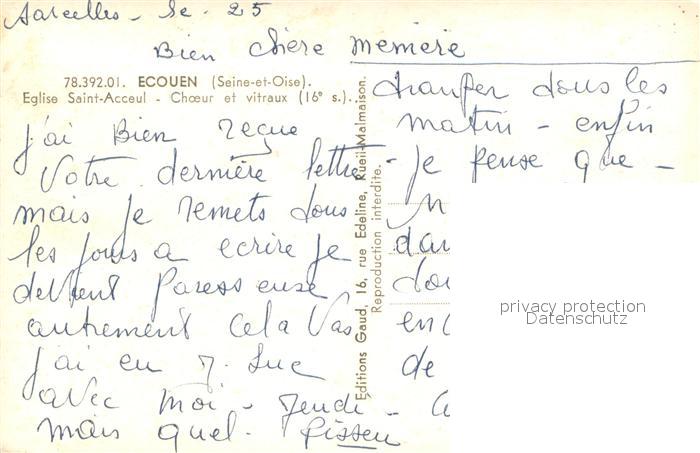 Sarcelles - le - 25
Bien chère memère
78.392.01. ECOUEN (Seine-et-Oise).
Eglise Saint-Acceul - Chœur et vitraux (16e s.).
j'ai Bien reçue
Votre dernière lettre -
mais je remets tous
les jours a ecrire je
devient paresseuse
autrement cela vas
j'ai eu J. Luc
avec moi - jeudi -
mais quel -
Editions Gaud, 16, rue Edeline, Rueil-Malmaison.
Reproduction interdite.
changer tous les
matin - enfin
je pense que -
de
privacy protection
Datenschutz